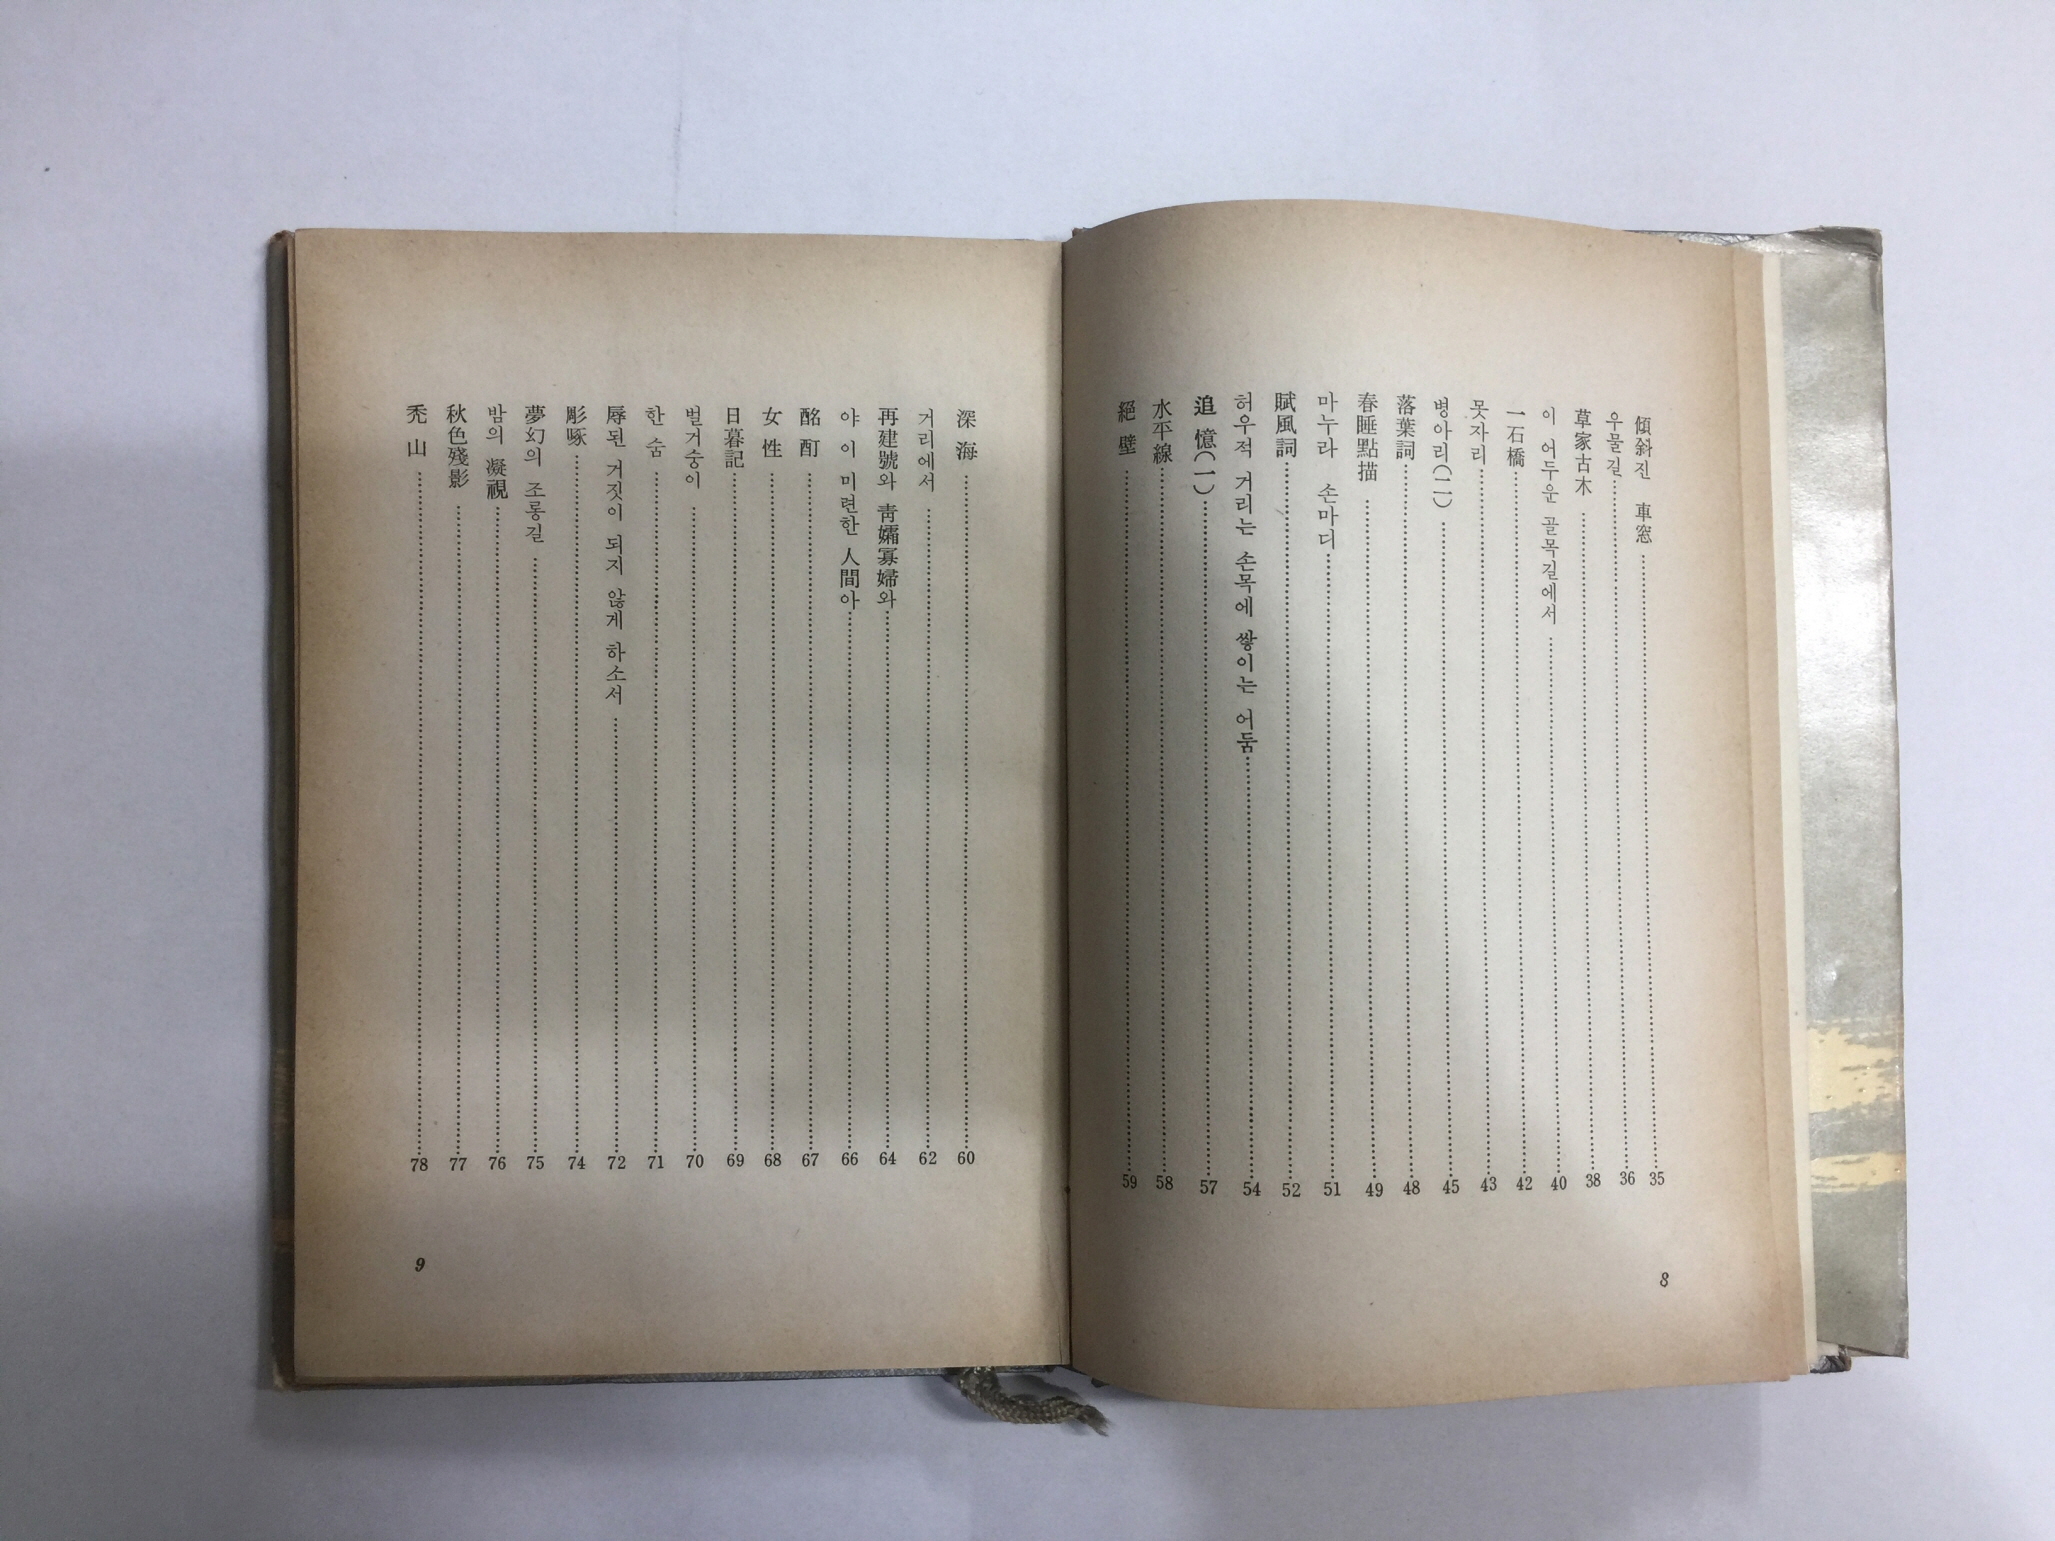 傾斜진 車窓 35
우물길 36
草家古木 38
이 어두운 골목길에서 40
一石橋 42
못자리 43
병아리(二) 45
落葉詞 48
春睡點描 49
마누라 손마디 51
賦風詞 52
허우적 거리는 손목에 쌓이는 어둠 54
追憶(一) 57
水平線 58
絕壁 59
8
深海 60
거리에서 62
再建號와 靑孀寡婦와 64
야 이 미련한 人間아 66
酩酊 67
女性 68
日暮記 69
벌거숭이 70
한 숨 71
辱된 거짓이 되지 않게 하소서 72
彫啄 74
夢幻의 조롱길 75
밤의 凝視 76
秋色殘影 77
禿山 78
9